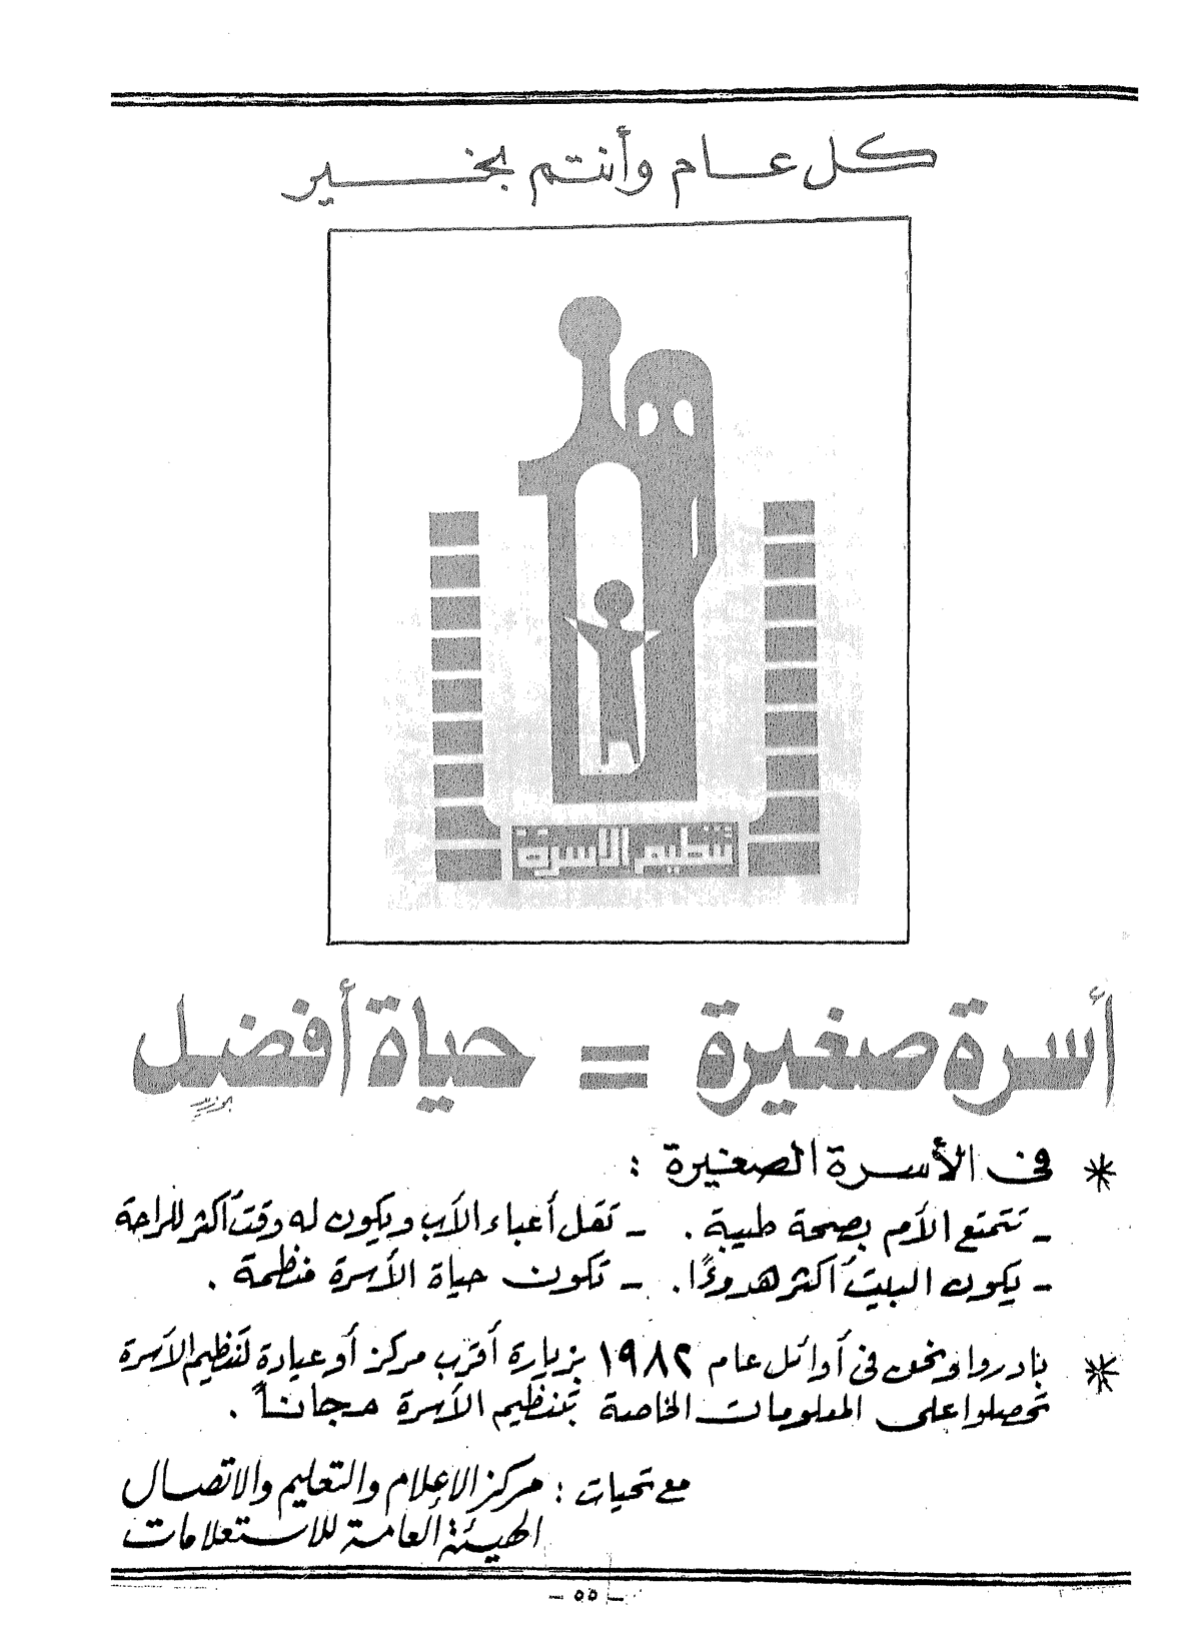 كل عام وأنتم بخير
تنظيم الاسرة
أسرة صغيرة = حياة أفضل
* فى الأسرة الصغيرة :
ـ تتمتع الأم بصحة طيبة . ـ تقل أعباء الأب ويكون له وقت أكثر للراحة
ـ يكون البيت أكثر هدوءًا . ـ تكون حياة الأسرة منظمة .
* بادروا ونحن فى أوائل عام ١٩٨٢ بزيارة أقرب مركز أو عيادة لتنظيم الأسرة
تحصلوا على المعلومات الخاصة بتنظيم الأسرة مجاناً .
مع تحيات : مركز الإعلام والتعليم والاتصال
الهيئة العامة للاستعلامات
ـ ٥٥ ـ